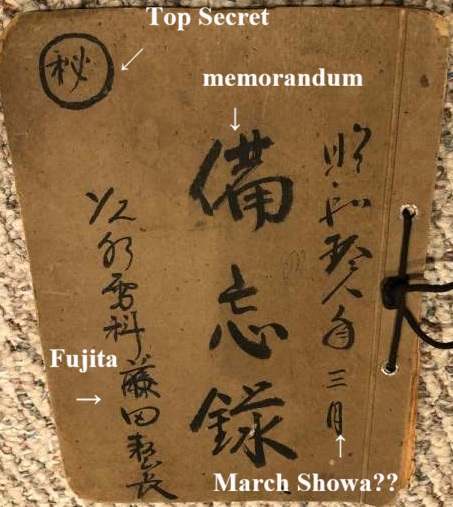 Top Secret
秘
memorandum
昭和拾八年三月
備忘録
藤田
Fujita
March Showa??